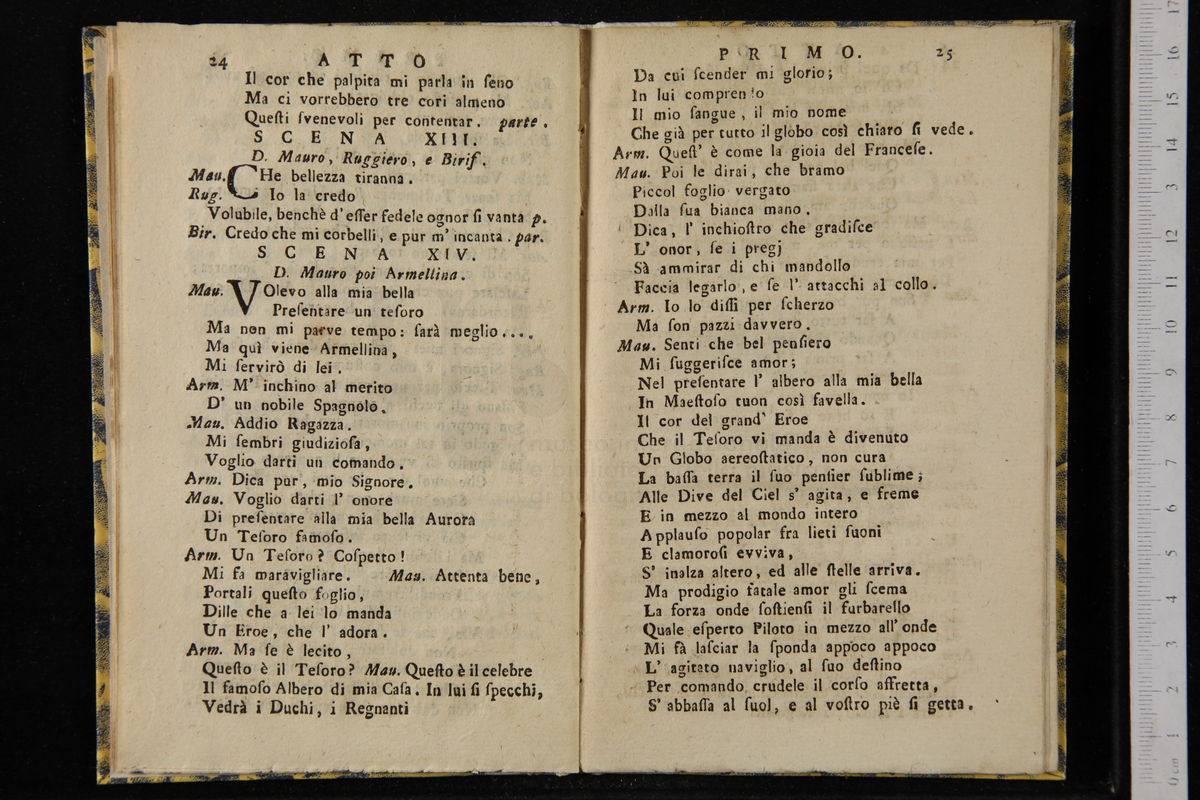 24 ATTO
Il cor che palpita mi parla in ſeno
Ma ci vorrebbero tre cori almeno
Queſti ſvenevoli per contentar. parte.
SCENA XIII.
D. Mauro, Ruggiero, e Biriſ.
Mau. CHe bellezza tiranna.
Rug. Io la credo
Volubile, benchè d' eſſer fedele ognor ſi vanta p.
Bir. Credo che mi corbelli, e pur m' incanta. par.
SCENA XIV.
D. Mauro poi Armellina.
Mau. VOlevo alla mia bella
Preſentare un teſoro
Ma non mi parve tempo: ſarà meglio....
Ma quì viene Armellina,
Mi ſervirò di lei.
Arm. M' inchino al merito
D' un nobile Spagnolo.
Mau. Addio Ragazza.
Mi ſembri giudizioſa,
Voglio darti un comando.
Arm. Dica pur, mio Signore.
Mau. Voglio darti l' onore
Di preſentare alla mia bella Aurora
Un Teſoro famoſo.
Arm. Un Teſoro? Coſpetto!
Mi fa maravigliare. Mau. Attenta bene,
Portali queſto foglio,
Dille che a lei lo manda
Un Eroe, che l' adora.
Arm. Ma ſe è lecito,
Queſto è il Teſoro? Mau. Queſto è il celebre
Il famoſo Albero di mia Caſa. In lui ſi ſpecchi,
Vedrà i Duchi, i Regnanti
PRIMO. 25
Da cui ſcender mi glorio;
In lui comprendo
Il mio ſangue, il mio nome
Che già per tutto il globo così chiaro ſi vede.
Arm. Queſt' è come la gioia del Franceſe.
Mau. Poi le dirai, che bramo
Piccol foglio vergato
Dalla ſua bianca mano.
Dica, l' inchioſtro che gradiſce
L' onor, ſe i pregj
Sà ammirar di chi mandollo
Faccia legarlo, e ſe l' attacchi al collo.
Arm. Io lo diſſi per ſcherzo
Ma ſon pazzi davvero.
Mau. Senti che bel penſiero
Mi ſuggeriſce amor;
Nel preſentare l' albero alla mia bella
In Maeſtoſo tuon così favella.
Il cor del grand' Eroe
Che il Teſoro vi manda è divenuto
Un Globo aereoſtatico, non cura
La baſſa terra il ſuo penſier ſublime;
Alle Dive del Ciel s' agita, e freme
E in mezzo al mondo intero
Applauſo popolar fra lieti ſuoni
E clamoroſi evviva,
S' inalza altero, ed alle ſtelle arriva.
Ma prodigio fatale amor gli ſcema
La forza onde ſoſtienſi il furbarello
Quale eſperto Piloto in mezzo all' onde
Mi fà laſciar la ſponda appoco appoco
L' agitato naviglio, al ſuo deſtino
Per comando crudele il corſo affretta,
S' abbaſſa al ſuol, e al voſtro piè ſi getta.